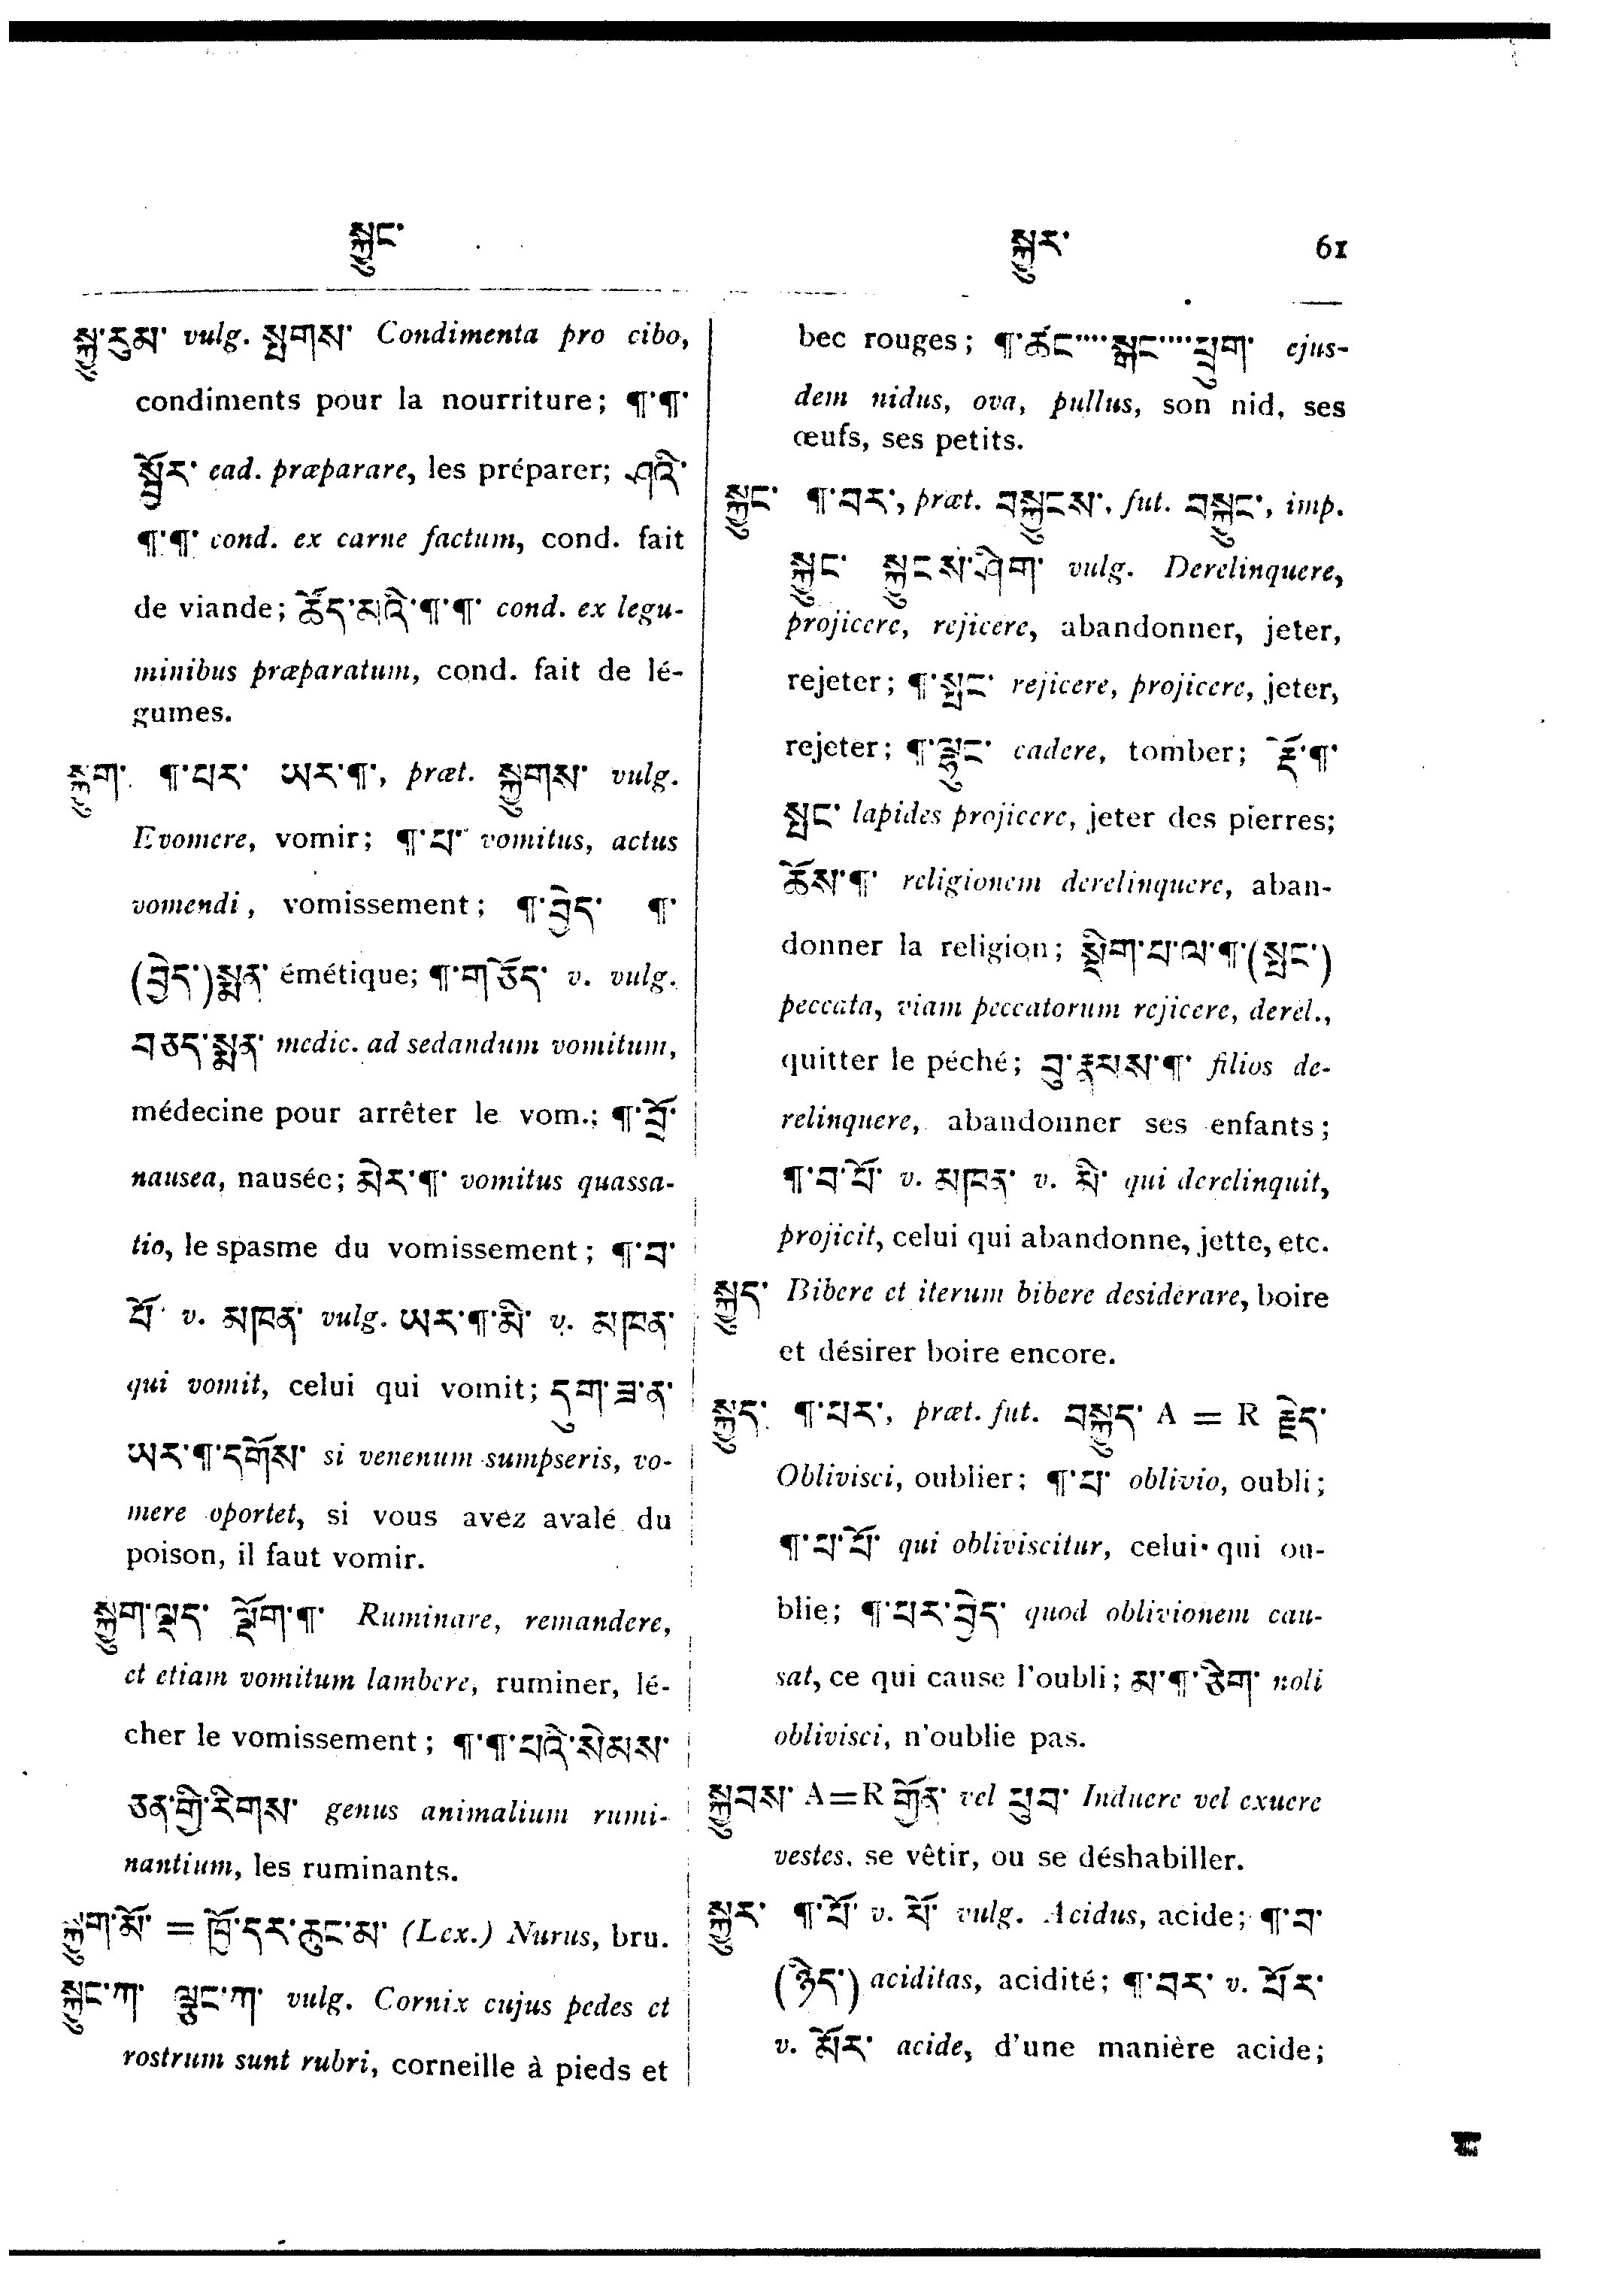 སྐྱུང་
སྐྱུར་ 61
སྐྱུ་རུམ་ vulg. སྤགས་ Condimenta pro cibo,
condiments pour la nourriture; ¶་¶་
སྦྱོར་ ead. præparare, les préparer; ཤའི་
¶་¶་ cond. ex carne factum, cond. fait
de viande; ཚོད་མའི་¶་¶་ cond. ex legu-
minibus præparatum, cond. fait de lé-
gumes.
སྐྱུག་ ¶་པར་ ཡར་¶་, præt. སྐྱུགས་ vulg.
Evomere, vomir; ¶་པ་ vomitus, actus
vomendi, vomissement; ¶་བྱེད་ ¶་
(བྱེད་)སྨན་ émétique; ¶་གཅོད་ v. vulg.
བཅད་སྨན་ medic. ad sedandum vomitum,
médecine pour arrêter le vom.; ¶་བྲོ་
nausea, nausée; མེར་¶་ vomitus quassa-
tio, le spasme du vomissement; ¶་བ་
པོ་ v. མཁན་ vulg. ཡར་¶་མི་ v. མཁན་
qui vomit, celui qui vomit; དུག་ཟ་ན་
ཡར་¶་དགོས་ si venenum sumpseris, vo-
mere oportet, si vous avez avalé du
poison, il faut vomir.
སྐྱུག་ལྡད་ ལྡོག་¶་ Ruminare, remandere,
et etiam vomitum lambere, ruminer, lé-
cher le vomissement; ¶་¶་པའི་སེམས་
ཅན་གྱི་རིགས་ genus animalium rumi-
nantium, les ruminants.
སྐྱུག་མོ་ = ཁྲོ་དར་ཆུང་མ་ (Lex.) Nurus, bru.
སྐྱུང་ཀ་ ལྕུང་ཀ་ vulg. Cornix cujus pedes et
rostrum sunt rubri, corneille à pieds et
bec rouges; ¶་ཚང་····སྒང་····ཕྲུག་ ejus-
dem nidus, ova, pullus, son nid, ses
œufs, ses petits.
སྐྱུང་ ¶་བར་, præt. བསྐྱུངས་, fut. བསྐྱུང་, imp.
སྐྱུང་ སྐྱུངས་ཤིག་ vulg. Derelinquere,
projicere, rejicere, abandonner, jeter,
rejeter; ¶་སྤང་ rejicere, projicere, jeter,
rejeter; ¶་ལྷུང་ cadere, tomber; རྡོ་¶་
སྤང་ lapides projicere, jeter des pierres;
ཆོས་¶་ religionem derelinquere, aban-
donner la religion; སྡིག་པ་ལ་¶་(སྤང་)
peccata, viam peccatorum rejicere, derel.,
quitter le péché; བུ་རྣམས་¶་ filios de-
relinquere, abandonner ses enfants;
¶་བ་པོ་ v. མཁན་ v. མི་ qui derelinquit,
projicit, celui qui abandonne, jette, etc.
སྐྱུད་ Bibere et iterum bibere desiderare, boire
et désirer boire encore.
སྐྱུད་ ¶་པར་, præt. fut. བསྐྱུད་ A = R རྗེད་
Oblivisci, oublier; ¶་པ་ oblivio, oubli;
¶་པ་པོ་ qui obliviscitur, celui qui ou-
blie; ¶་པར་བྱེད་ quod oblivionem cau-
sat, ce qui cause l'oubli; མ་¶་ཅིག་ noli
oblivisci, n'oublie pas.
སྐྱུབས་ A=R གྱོན་ vel ཕུབ་ Induere vel exuere
vestes, se vêtir, ou se déshabiller.
སྐྱུར་ ¶་པོ་ v. མོ་ vulg. Acidus, acide; ¶་བ་
(ཉིད་) aciditas, acidité; ¶་བར་ v. པོར་
v. མོར་ acide, d'une manière acide;